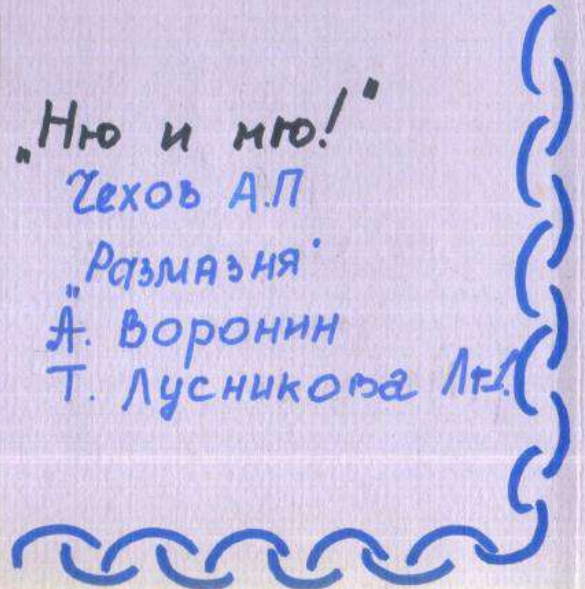 „Ню и ню!"
Чехов А.П
„Размазня"
А. Воронин
Т. Лусникова